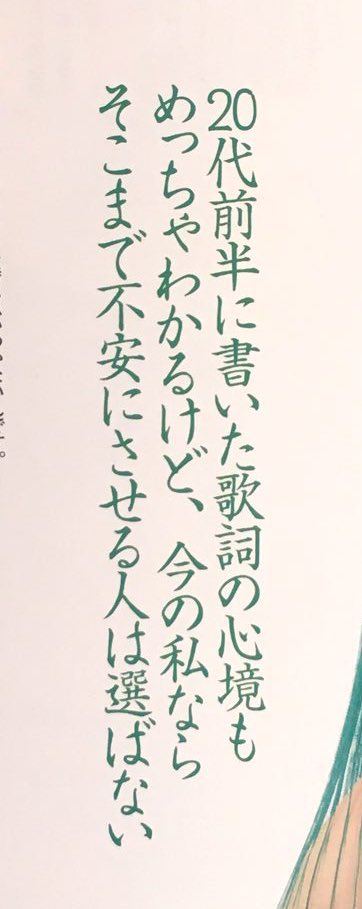 20代前半に書いた歌詞の心境も
めっちゃわかるけど、今の私なら
そこまで不安にさせる人は選ばない